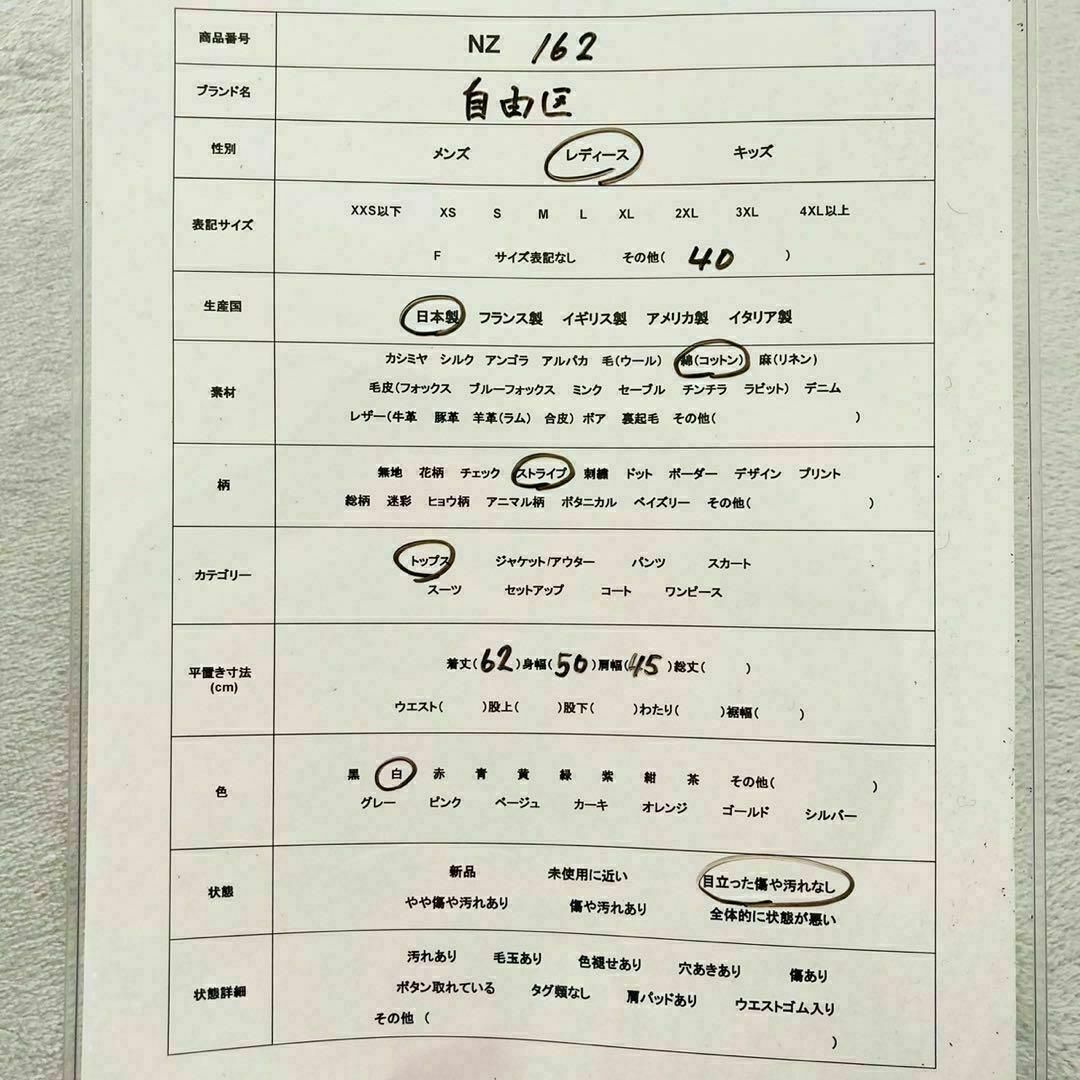 商品番号 NZ 162
ブランド名 自由区
性別 メンズ レディース キッズ
表記サイズ XXS以下 XS S M L XL 2XL 3XL 4XL以上
F サイズ表記なし その他( 40 )
生産国 日本製 フランス製 イギリス製 アメリカ製 イタリア製
素材 カシミヤ シルク アンゴラ アルパカ 毛(ウール) 綿(コットン) 麻(リネン)
毛皮(フォックス ブルーフォックス ミンク セーブル チンチラ ラビット) デニム
レザー(牛革 豚革 羊革(ラム) 合皮) ボア 裏起毛 その他( )
柄 無地 花柄 チェック ストライプ 刺繍 ドット ボーダー デザイン プリント
総柄 迷彩 ヒョウ柄 アニマル柄 ボタニカル ペイズリー その他( )
カテゴリー トップス ジャケット/アウター パンツ スカート
スーツ セットアップ コート ワンピース
平置き寸法 (cm) 着丈(62)身幅(50)肩幅(45)総丈( )
ウエスト( )股上( )股下( )わたり( )裾幅( )
色 黒 白 赤 青 黄 緑 紫 紺 茶 その他( )
グレー ピンク ベージュ カーキ オレンジ ゴールド シルバー
状態 新品 未使用に近い 目立った傷や汚れなし
やや傷や汚れあり 傷や汚れあり 全体的に状態が悪い
状態詳細 汚れあり 毛玉あり 色褪せあり 穴あきあり 傷あり
ボタン取れている タグ類なし 肩パッドあり ウエストゴム入り
その他 ( )